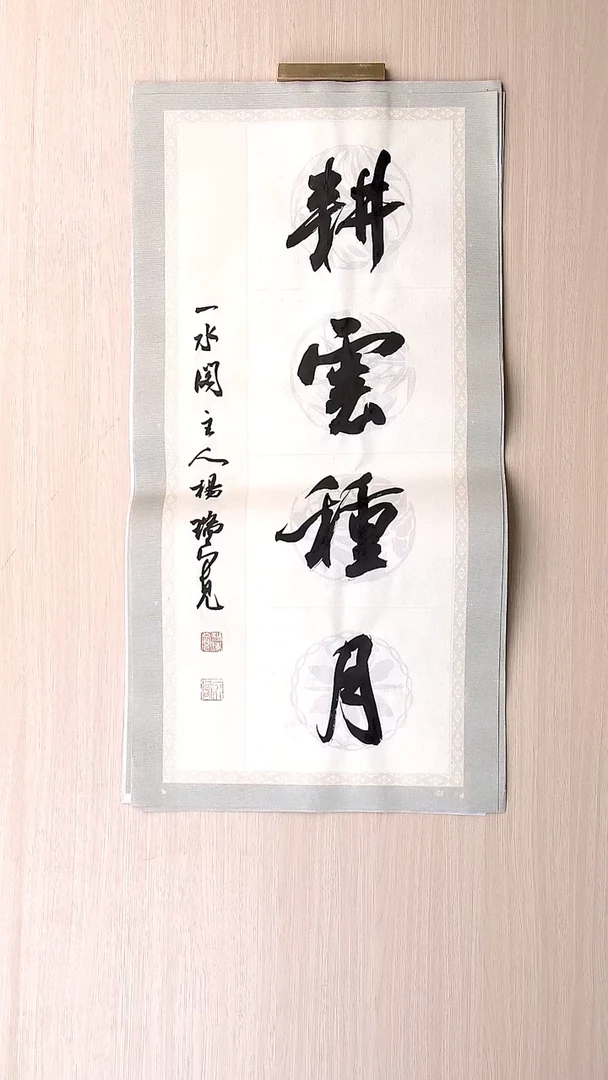 耕雲種月
一水閣主人楊瑞寬